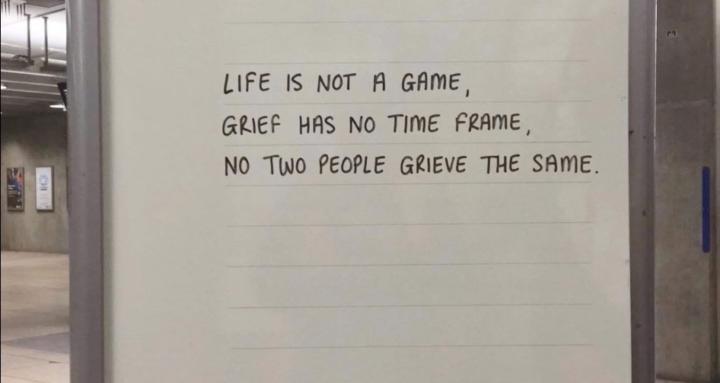 LIFE IS NOT A GAME,
GRIEF HAS NO TIME FRAME,
NO TWO PEOPLE GRIEVE THE SAME.